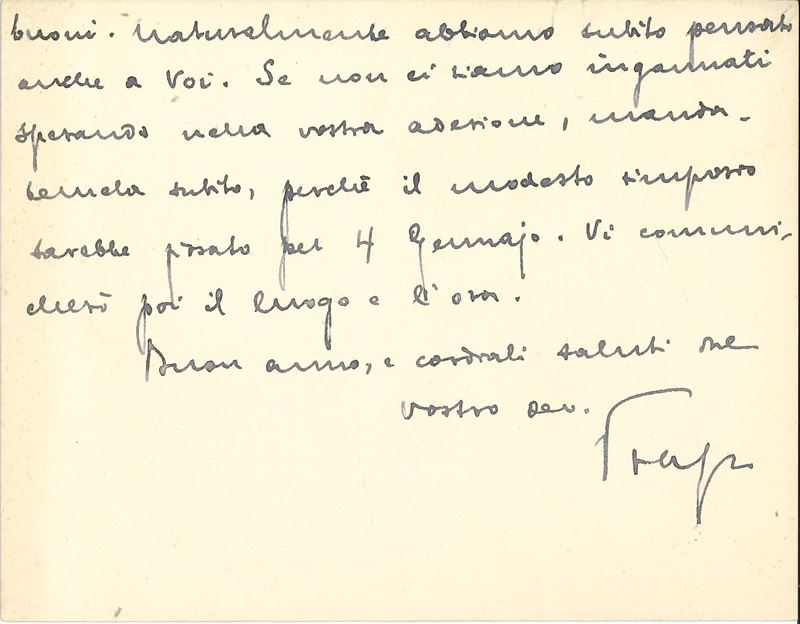 buoni. Naturalmente abbiamo subito pensato
anche a Voi. Se non ci siamo ingannati
sperando nella vostra adesione, manda-
temela subito, perchè il modesto simposio
sarebbe fissato pel 4 Gennajo. Vi comuni-
cherò poi il luogo e l'ora.
Buon anno, e cordiali saluti del
vostro dev.